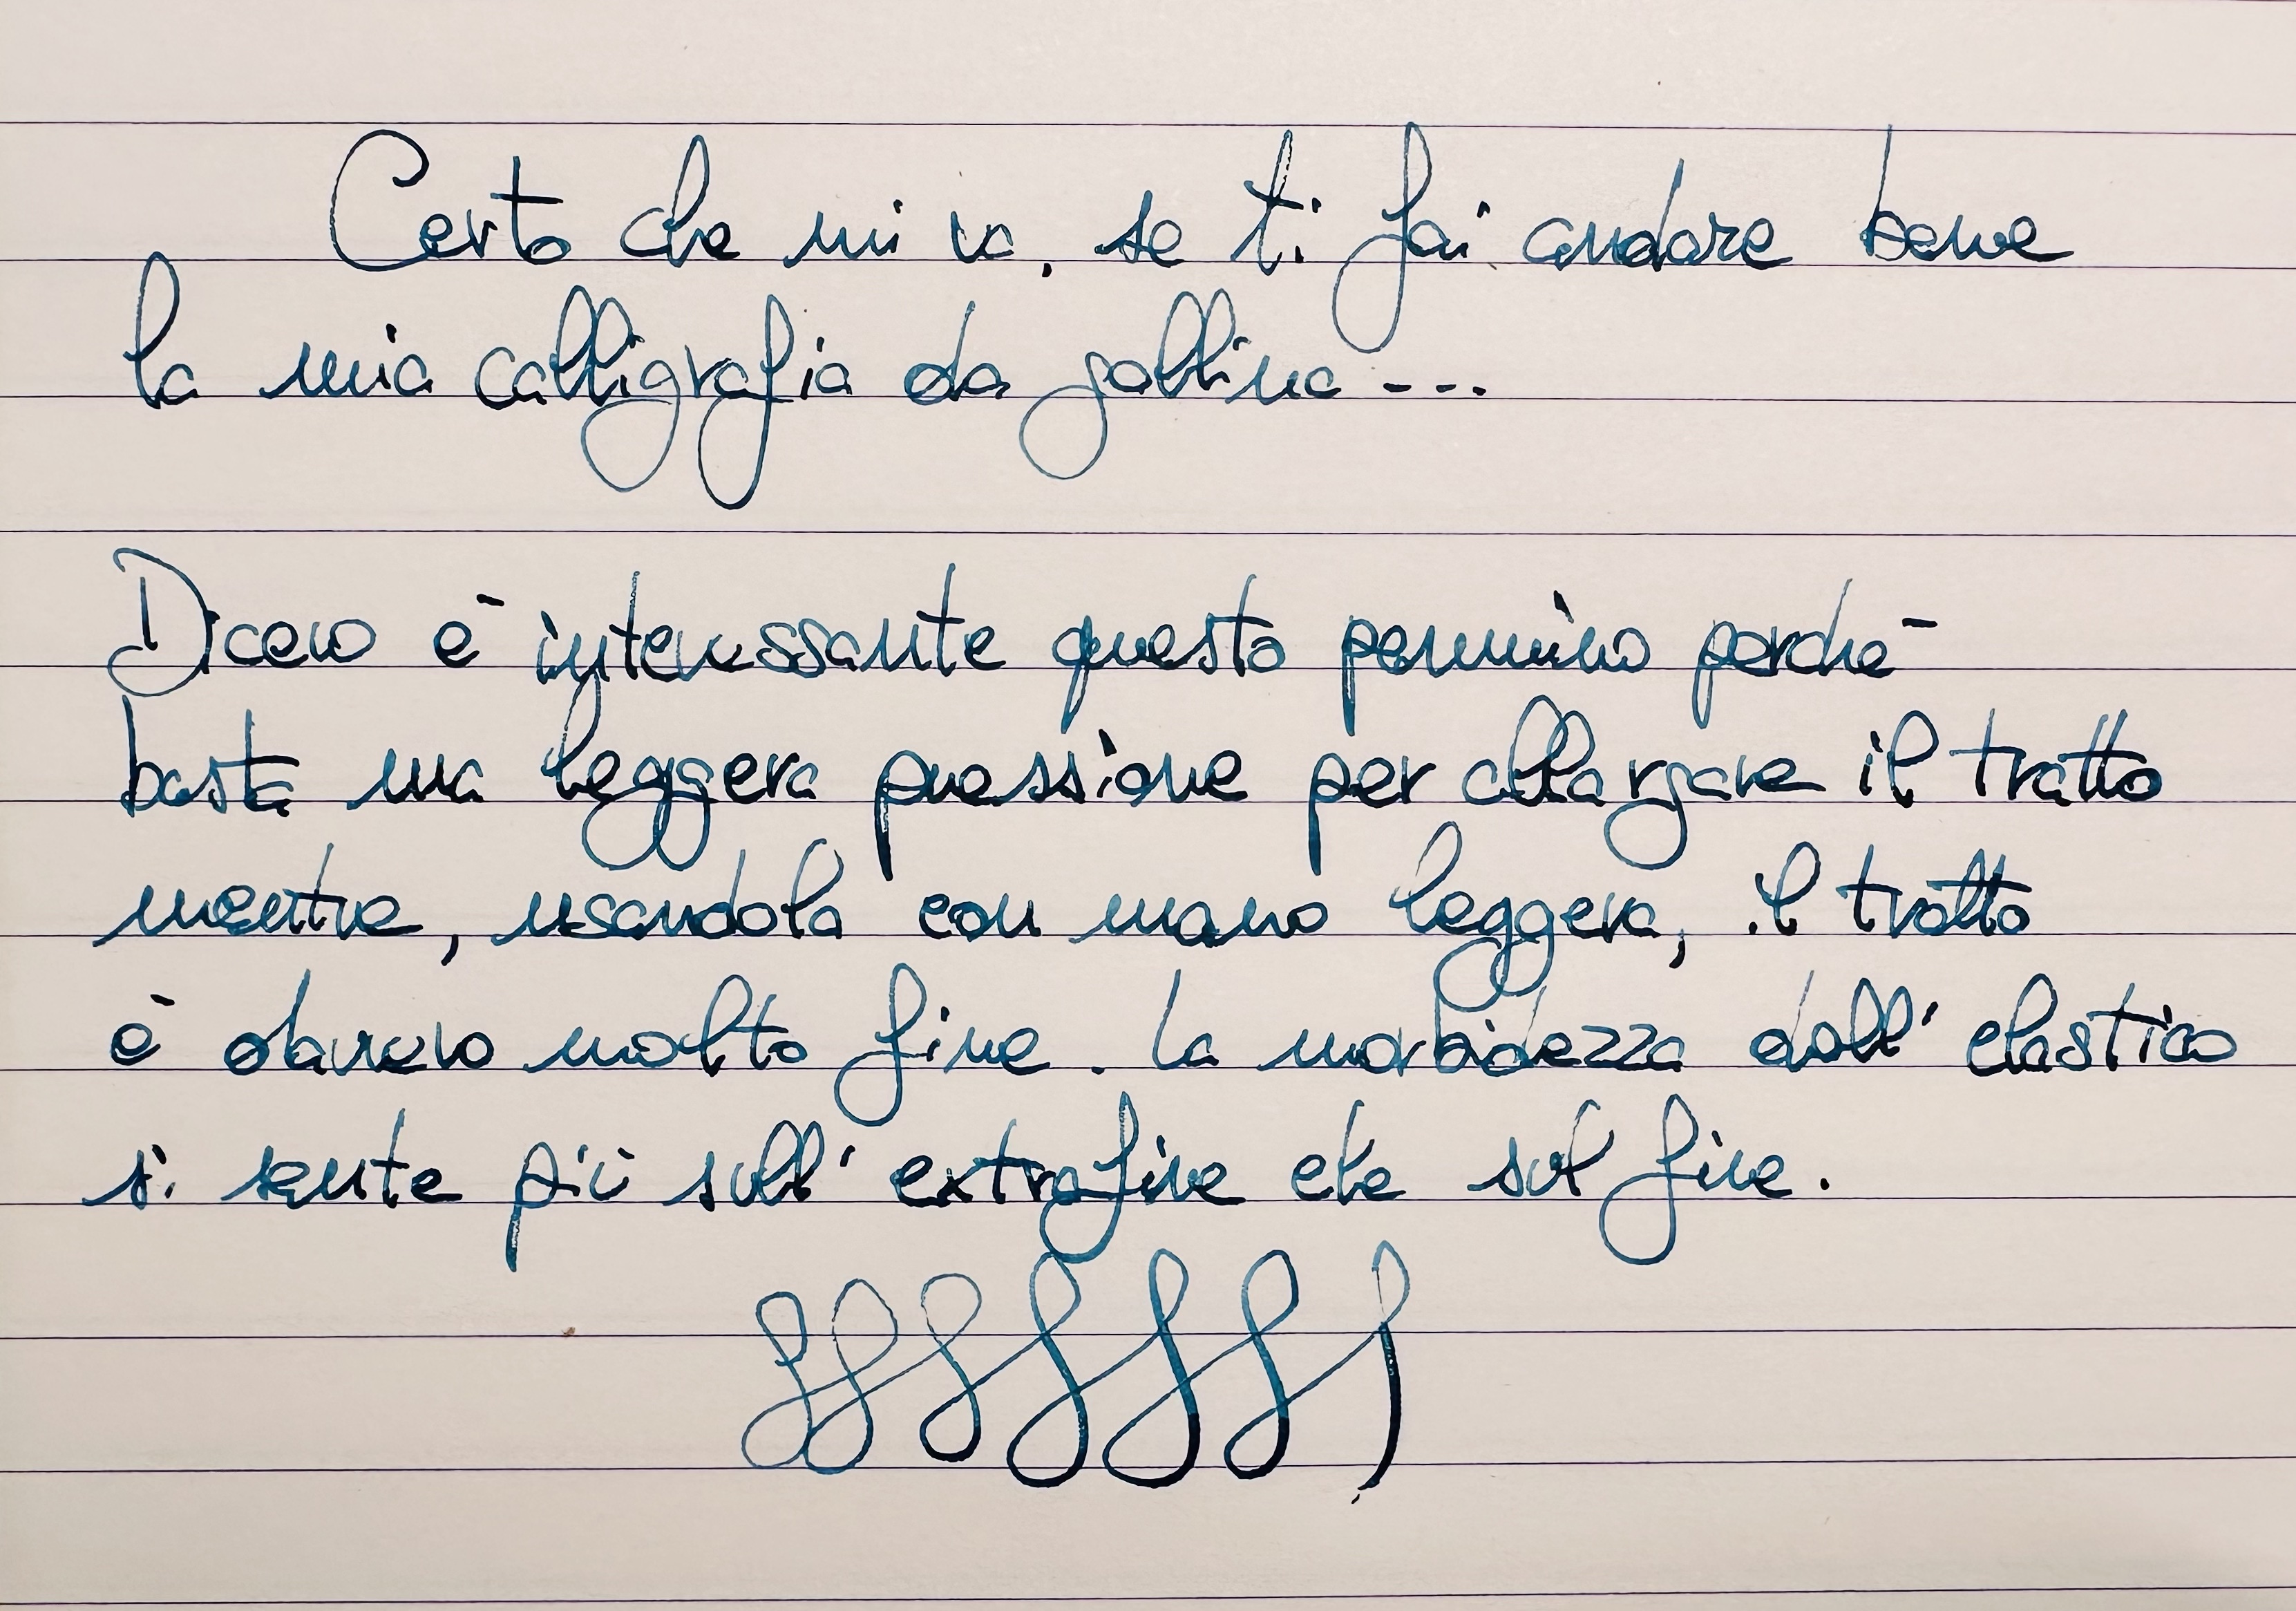 Certo che mi va, se ti fai andare bene
la mia calligrafia da gallina ---
Dicevo è interessante questo pennino perché
basta una leggera pressione per allargare il tratto
mentre, usandola con mano leggera, il tratto
è davvero molto fine. La morbidezza dell'elastico
si sente più sull'extrafine che sul fine.